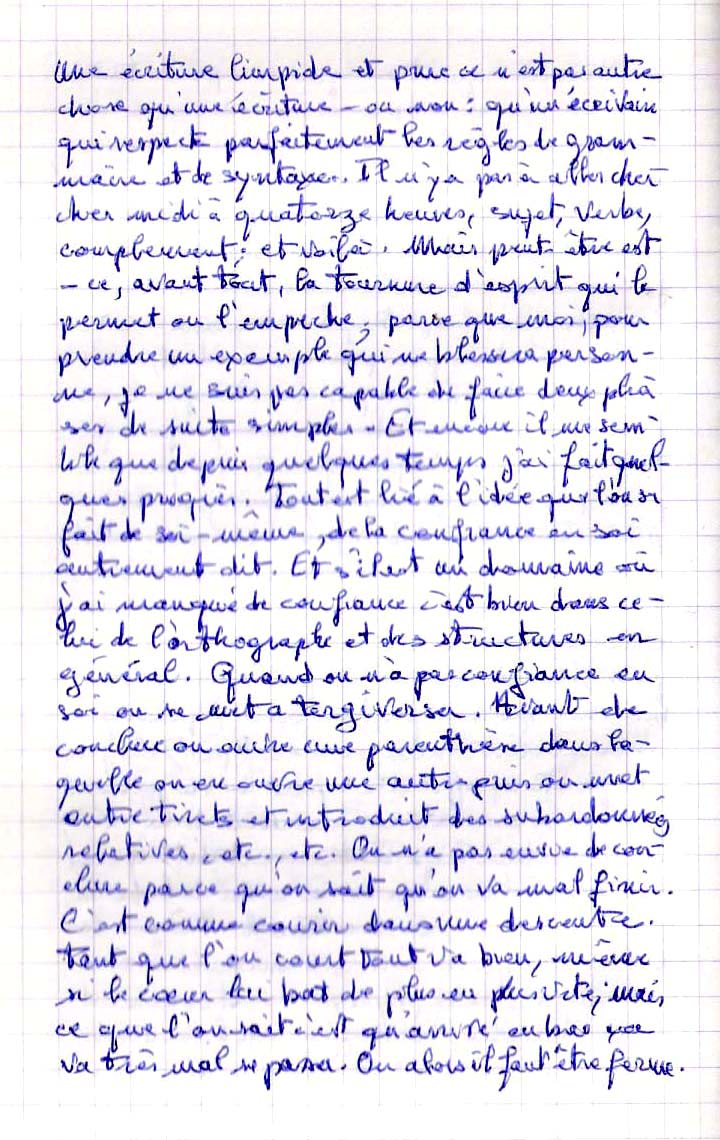 Une écriture limpide et pure ce n'est pas autre
chose qu'une écriture – ou non : qu'un écrivain
qui respecte parfaitement les règles de gram-
maire et de syntaxe. Il n'y a pas à aller cher
cher midi à quatorze heures, sujet, verbe,
complément ; et voilà. Mais peut-être est
- ce, avant tout, la tournure d'esprit qui le
permet ou l'empêche, parce que moi, pour
prendre un exemple qui ne blessera person-
ne, je ne suis pas capable de faire deux phra
ses de suite simples. Et encore il me sem
ble que depuis quelques temps j'ai fait quel-
ques progrès. Tout est lié à l'idée que l'on se
fait de soi-même, de la confiance en soi
autrement dit. Et s'il est un domaine où
j'ai manqué de confiance c'est bien dans ce-
lui de l'orthographe et des structures en
général. Quand on n'a pas confiance en
soi on se met a tergiverser. Avant de
conclure on ouvre une parenthèse dans la-
quelle on en ouvre une autre puis on met
entre tirets et introduit des subordonnées
relatives, etc., etc. On n'a pas envie de con
clure parce qu'on sait qu'on va mal finir.
C'est comme courir dans une descente.
tant que l'on court tout va bien, même
si le cœur lui bat de plus en plus vite, mais
ce que l'on sait c'est qu'arrivé en bas ça
va très mal se passer. Ou alors il faut être ferme.